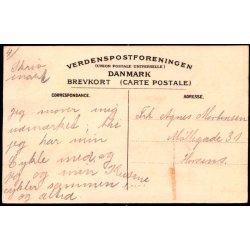 4/
Skriv
snart
VERDENSPOSTFORENINGEN
(UNION POSTALE UNIVERSELLE)
DANMARK
BREVKORT (CARTE POSTALE)
CORRESPONDANCE.
ADRESSE.
jeg morer mig
udmærket;
jeg har min
Cykle med, og
jeg og man
cykler sammen
og altid
Frk. Agnes Mortensen
Möllegade 31
Horsens.